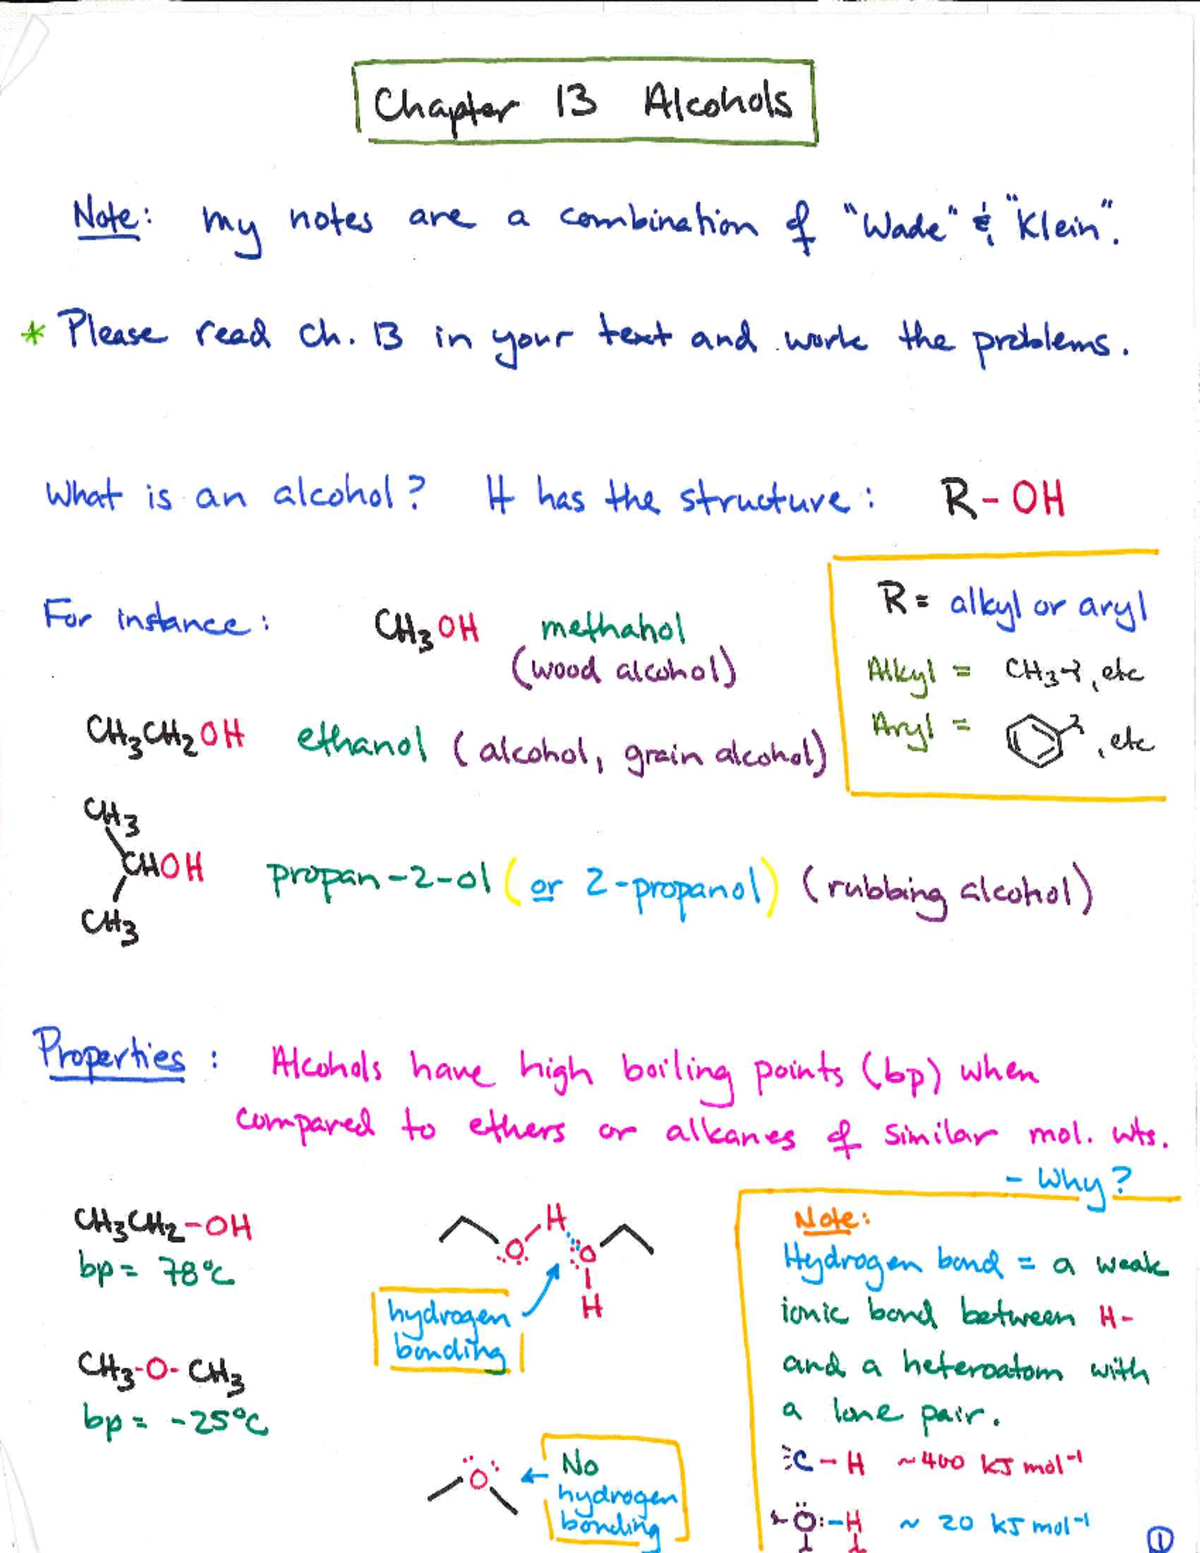 Chapter 13 Alcohols
Note: my notes are a combination of "Wade" & "Klein".
* Please read Ch. 13 in your text and work the problems.
What is an alcohol? It has the structure: R-OH
R = alkyl or aryl
For instance: CH3OH methanol
(wood alcohol)
Alkyl = CH3-, etc
CH3CH2OH ethanol (alcohol, grain alcohol)
Aryl = , etc
CH3
CHOH propan-2-ol (or 2-propanol) (rubbing alcohol)
CH3
Properties: Alcohols have high boiling points (bp) when
compared to ethers or alkanes of similar mol. wts.
- Why?
CH3CH2-OH
bp = 78°C
H
O
O
H
hydrogen
bonding
CH3-O-CH3
bp = -25°C
O
No
hydrogen
bonding
Note:
Hydrogen bond = a weak
ionic bond between H-
and a heteroatom with
a lone pair.
C-H ~400 kJ mol-1
O:-H ~ 20 kJ mol-1
1